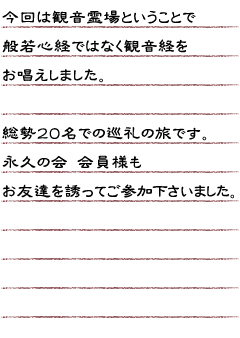 今回は観音霊場ということで
般若心経ではなく観音経を
お唱えしました。
総勢20名での巡礼の旅です。
永久の会 会員様も
お友達を誘ってご参加下さいました。